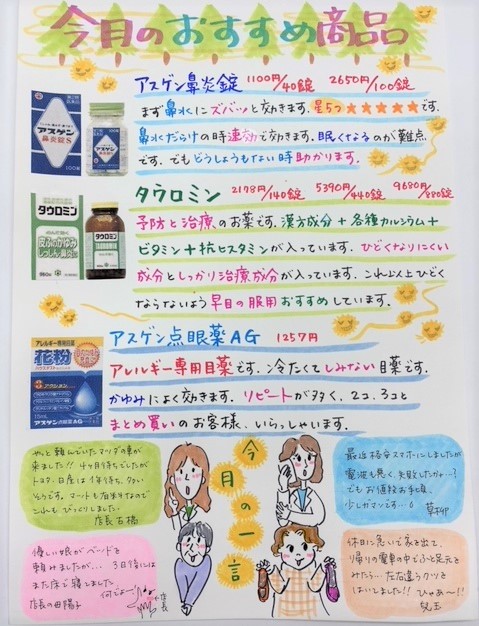 今月のおすすめ商品
アスゲン鼻炎錠 1100円/40錠 2650円/100錠
まず鼻水にズバッと効きます。星5つ★★★★★です。
鼻水だらけの時速効で効きます。眠くなるのが難点
です。でもどうしようもない時助かります。
アスゲン
鼻炎錠S
タウロミン 2178円/140錠 5390円/440錠 9680円/880錠
予防と治療のお薬です。漢方成分+各種カルシウム+
ビタミン+抗ヒスタミンが入っています。ひどくなりにくい
成分としっかり治療成分が入っています。これ以上ひどく
ならないよう早目の服用おすすめしています。
タウロミン
皮ふのかゆみ
しっしん・鼻炎に
タウロミン
アスゲン点眼薬AG 1257円
アレルギー専用目薬です。冷たくてしみない目薬です。
かゆみによく効きます。リピートが多く、2コ、3コと
まとめ買いのお客様、いらっしゃいます。
アレルギー専用眼薬
花粉
アスゲン点眼薬AG
今月の一言
やっと頼んでいたマツダの車が
来ました!!4ヶ月待ちでしたが
トヨタ、日産は1年待ち、多い
そうです。
びっくりしました。
店長 石橋
最近格安スマホにしましたが
電波も悪く、失敗したかァ…?
でもお値段お手頃、
少しガマンです…。
草柳
優しい娘がベッドを
頼みましたが… 3日後には
また床で寝てました。
何でよー
店長の母 陽子
店長
休日に急いで家を出て、
帰りの電車の中でふと足元を
みたら…左右違うクツを
はいてました!!ひゃあ〜!!
児玉